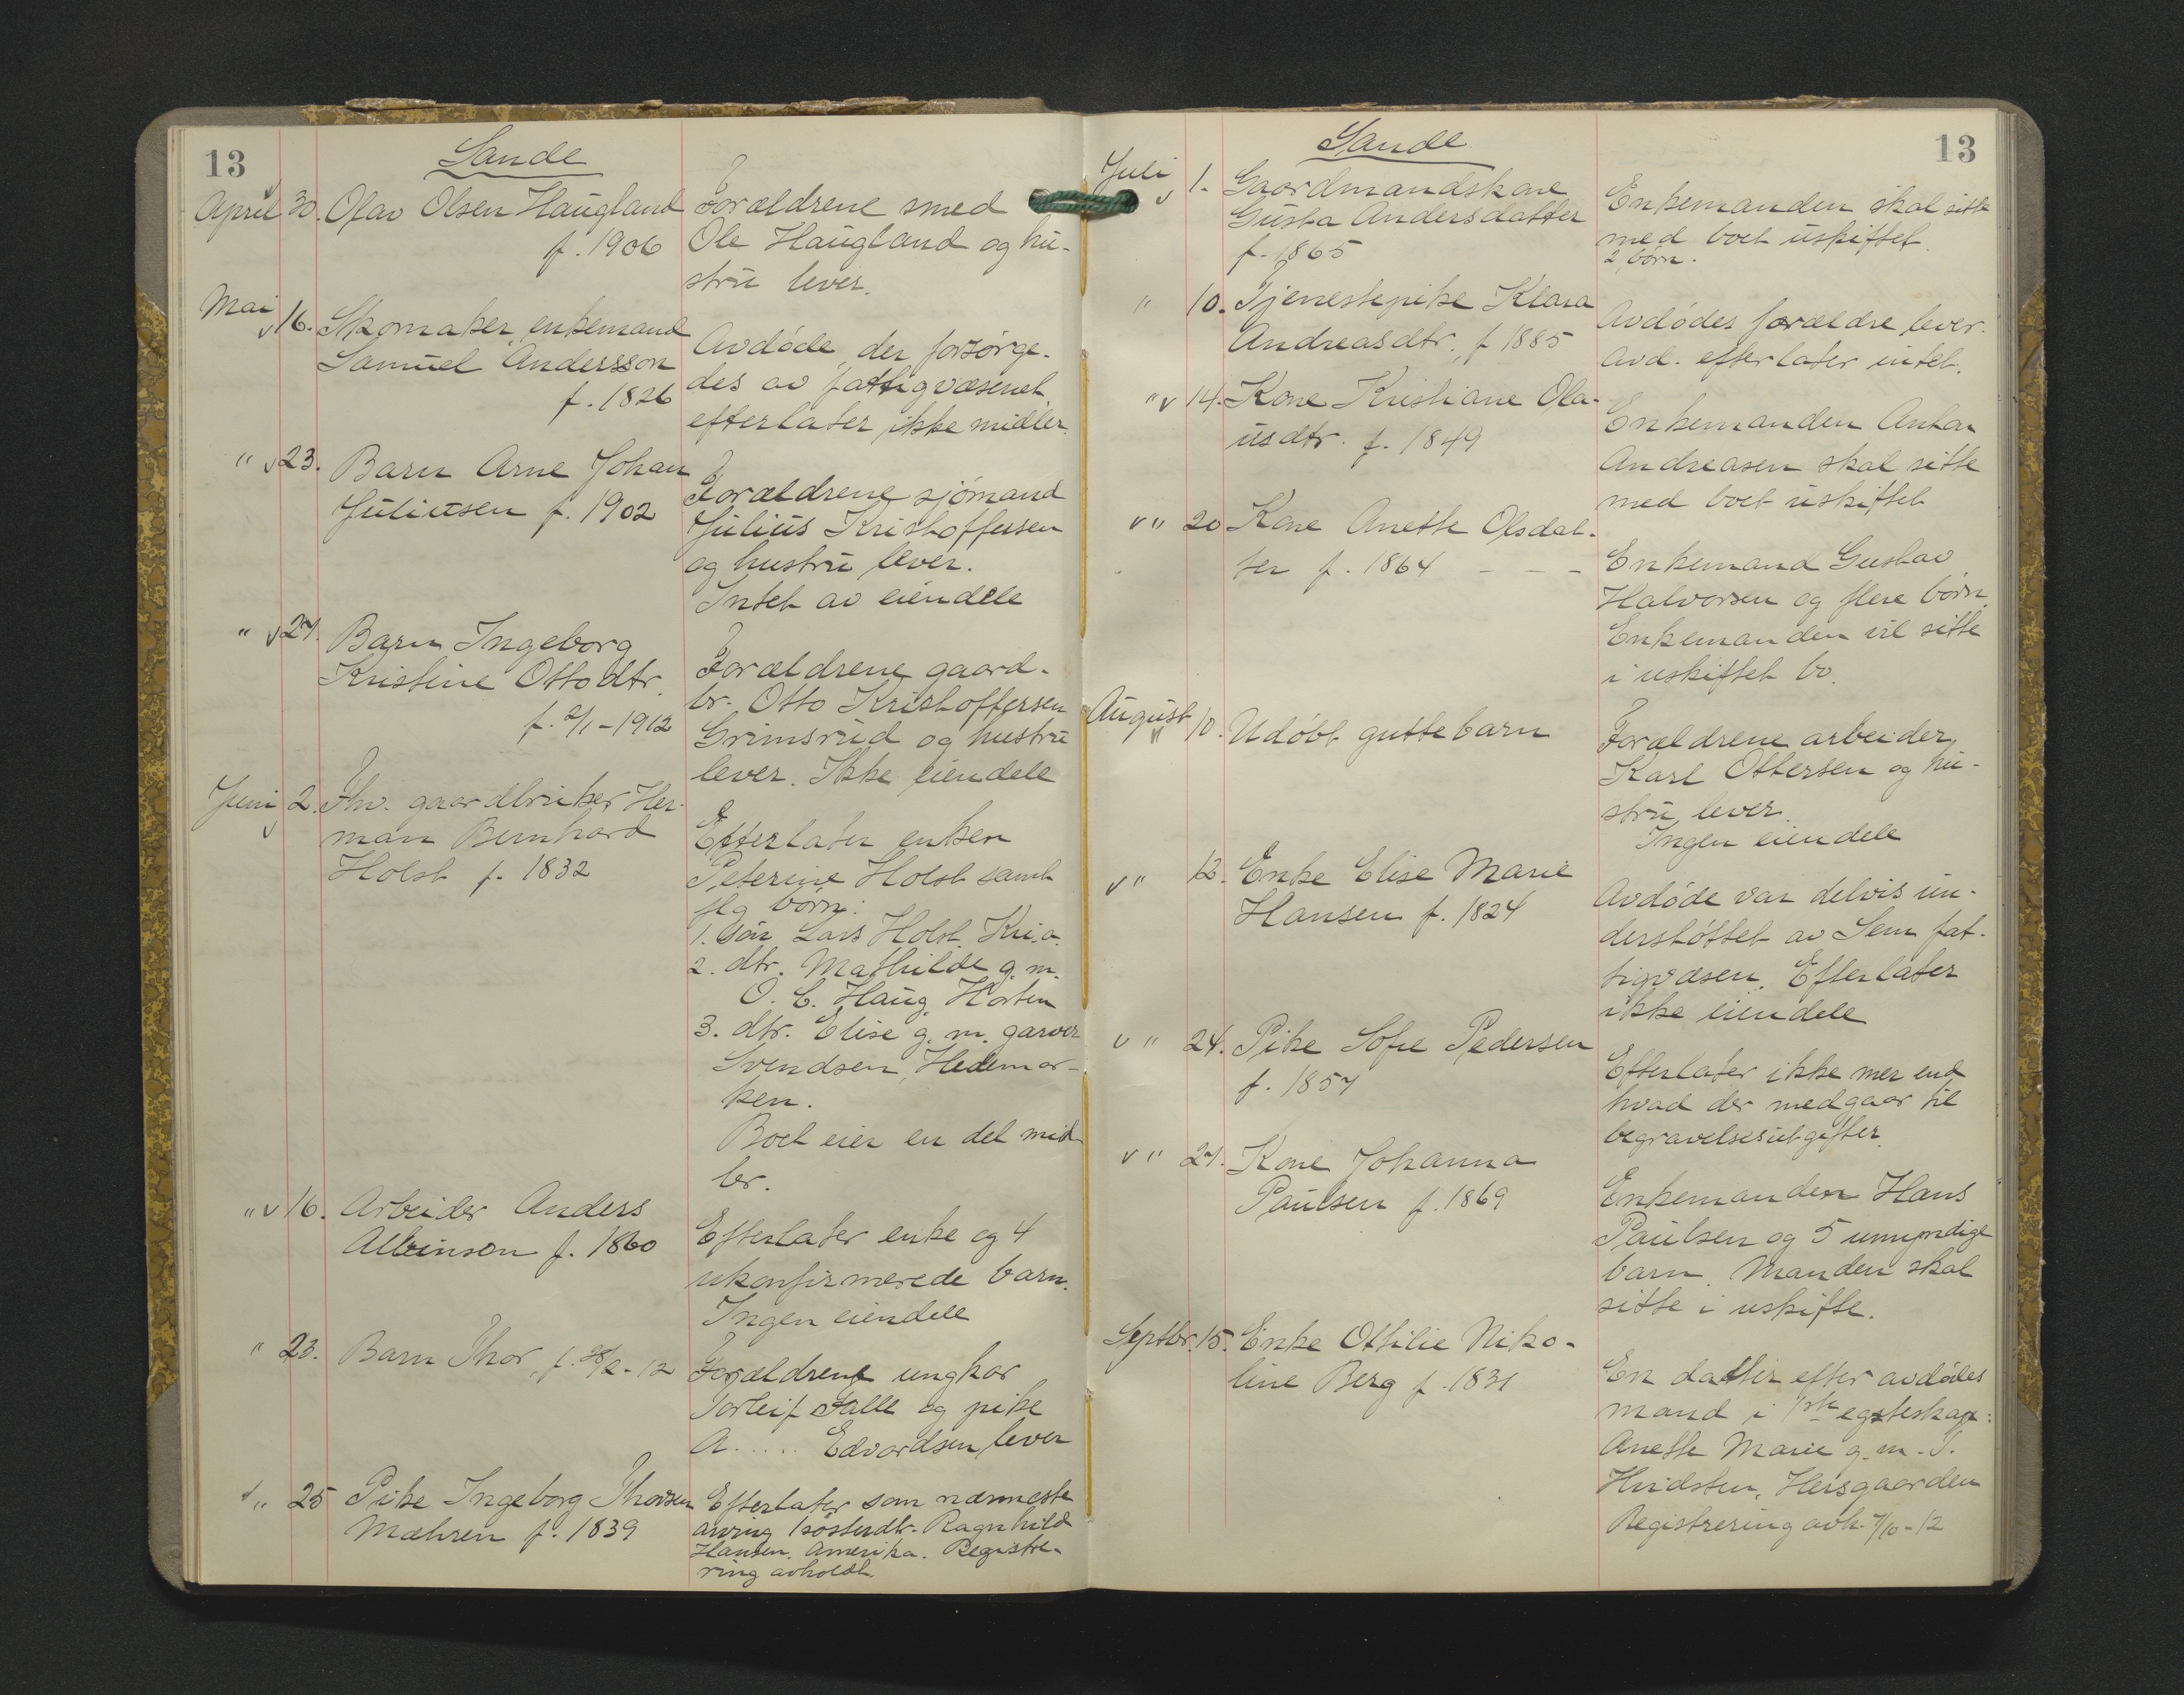 13
Sande
April 30. Olav Olsen Haugland
f. 1906
Forældrene smed
Ole Haugland og hu-
stru lever.
Mai 16. Skomaker, enkemand
Samuel Andersson
f. 1826
Avdöde, der forsörge-
des av fattigvæsenet
efterlater ikke midler.
" 23. Barn Arne Johan
Juliusen f. 1902
Forældrene sjömand
Julius Kristoffersen
og hustru lever.
Intet av eiendele
" 27. Barn Ingeborg
Kristine Ottodtr.
f. 2/1-1912
Forældrene gaard-
br. Otto Kristoffersen
Grimsrud og hustru
lever. Ikke eiendele
Juni 2. Fhv. gaardbruker Her-
man Bernhard
Holst f. 1832
Efterlater enken
Peterine Holst samt
flg börn:
1. Sön Lars Holst, Kr.a.
2. dtr. Mathilde g. m.
O. C. Haug, Horten
3. dtr. Elise g. m. garver
Svendsen, Hedemar-
ken.
Boet eier en del mid-
ler.
" 16. Arbeider Anders
Albinson f. 1860
Efterlater enke og 4
ukonfirmerede barn.
Ingen eiendele
" 23. Barn Thor, f. 28/2-12
Forældrene ungkar
Torleif Falle og pike
A..... Edvardsen lever
" 25 Pike Ingeborg Thorsen
Mæhren f. 1839
Efterlater som nærmeste
arving 1 sösterdtr. Ragnhild
Hansen, Amerika. Registre-
ring avholdt.
13
Sande
Juli 1. Gaardmandskone
Gusta Andersdatter
f. 1865
Enkemanden skal sitte
med boet uskiftet.
2 börn.
" 10. Tjenestepike Klara
Andreasdtr. f 1885
Avdödes forældre lever.
Avd. efterlater intet.
" 14. Kone Kristiane Ola-
usdtr. f. 1849
Enkemanden Anton
Andreasen skal sitte
med boet uskiftet
" 20 Kone Anette Olsdat-
ter f. 1864 - - -
Enkemand Gustav
Halvorsen og flere börn.
Enkemanden vil sitte
i uskiftet bo.
August 10. Udöbt guttebarn
Forældrene arbeider
Karl Ottersen og hu-
stru lever.
Ingen eiendele
" 12. Enke Elise Marie
Hansen f. 1824
Avdöde var delvis un-
derstöttet av Sem fat-
tigvæsen. Efterlater
ikke eiendele
" 24. Pike Sofie Pedersen
f. 1857
Efterlater ikke mer end
hvad der medgaar til
begravelsesutgifter.
" 27. Kone Johanna
Paulsen f. 1869
Enkemanden Hans
Paulsen og 5 umyndige
barn. Manden skal
sitte i uskifte.
Septbr. 15. Enke Ottilie Niko-
line Berg f. 1831
En datter efter avdödes
mand i 1ste egteskap:
Anette Marie g. m.
Hvidsten,
Registrering avh. 7/10-12